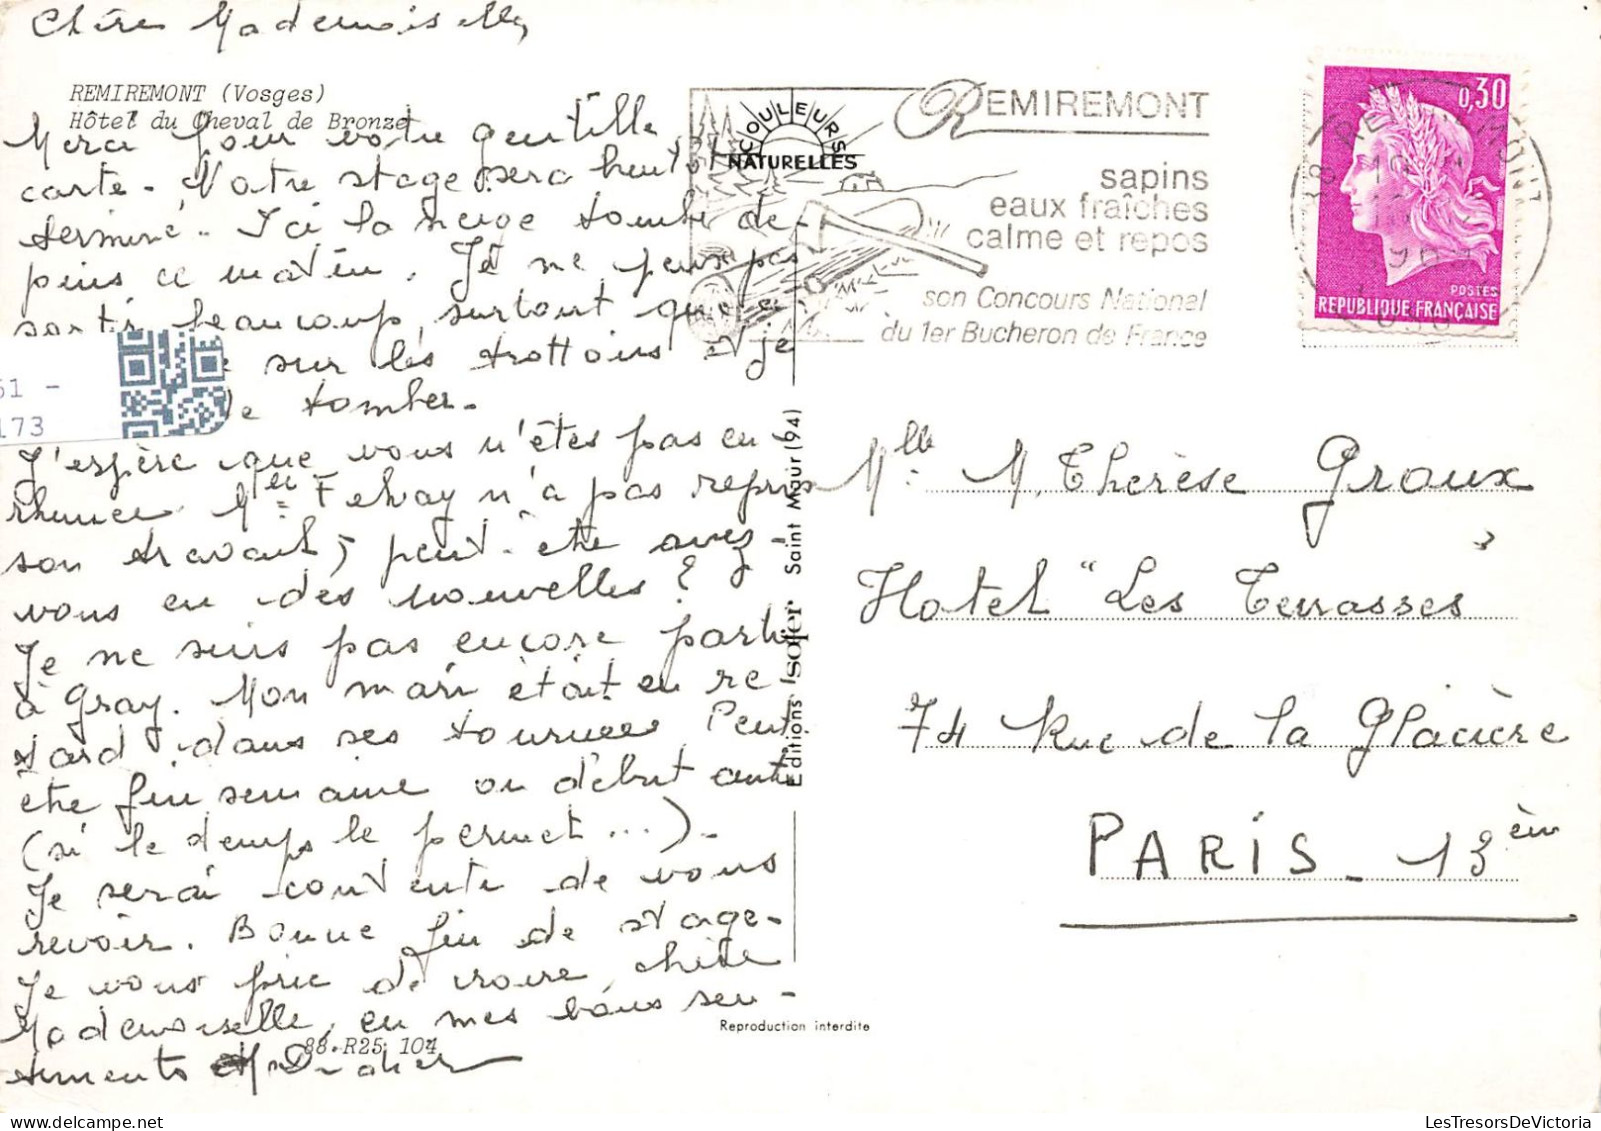 Chère Mademoiselle,
REMIREMONT (Vosges)
Hôtel du Cheval de Bronze
Merci pour votre gentille
carte. Votre stage sera bentôt
terminé. Ici la neige tombe de-
puis ce matin. Je ne peux pas
sortir beaucoup, surtout que
sur les trottoirs et je
de tomber.
J'espère que vous n'êtes pas en-
rhumée. Melle Fehay n'a pas repris
son travail, peut-être avez-
vous eu des nouvelles ?
Je ne suis pas encore partie
à Gray. Mon mari était en re-
tard dans ses tournées Peut
être fin semaine ou début autre
(si le temps le permet...).
Je serai contente de vous
revoir. Bonne fin de stage.
Je vous prie de croire, chère
Mademoiselle, en mes bons sen-
timents
88.R25 104
61 -
173
COULEURS
NATURELLES
REMIREMONT
sapins
eaux fraîches
calme et repos
son Concours National
du 1er Bucheron de France
0,30
POSTES
REPUBLIQUE FRANÇAISE
Editions Isofer Saint Maur (94)
Melle M. Thérèse Groux
Hotel "Les Terrasses"
74 Rue de la Glacière
PARIS - 13 èm
Reproduction interdite
LesTresorsDeVictoria.com